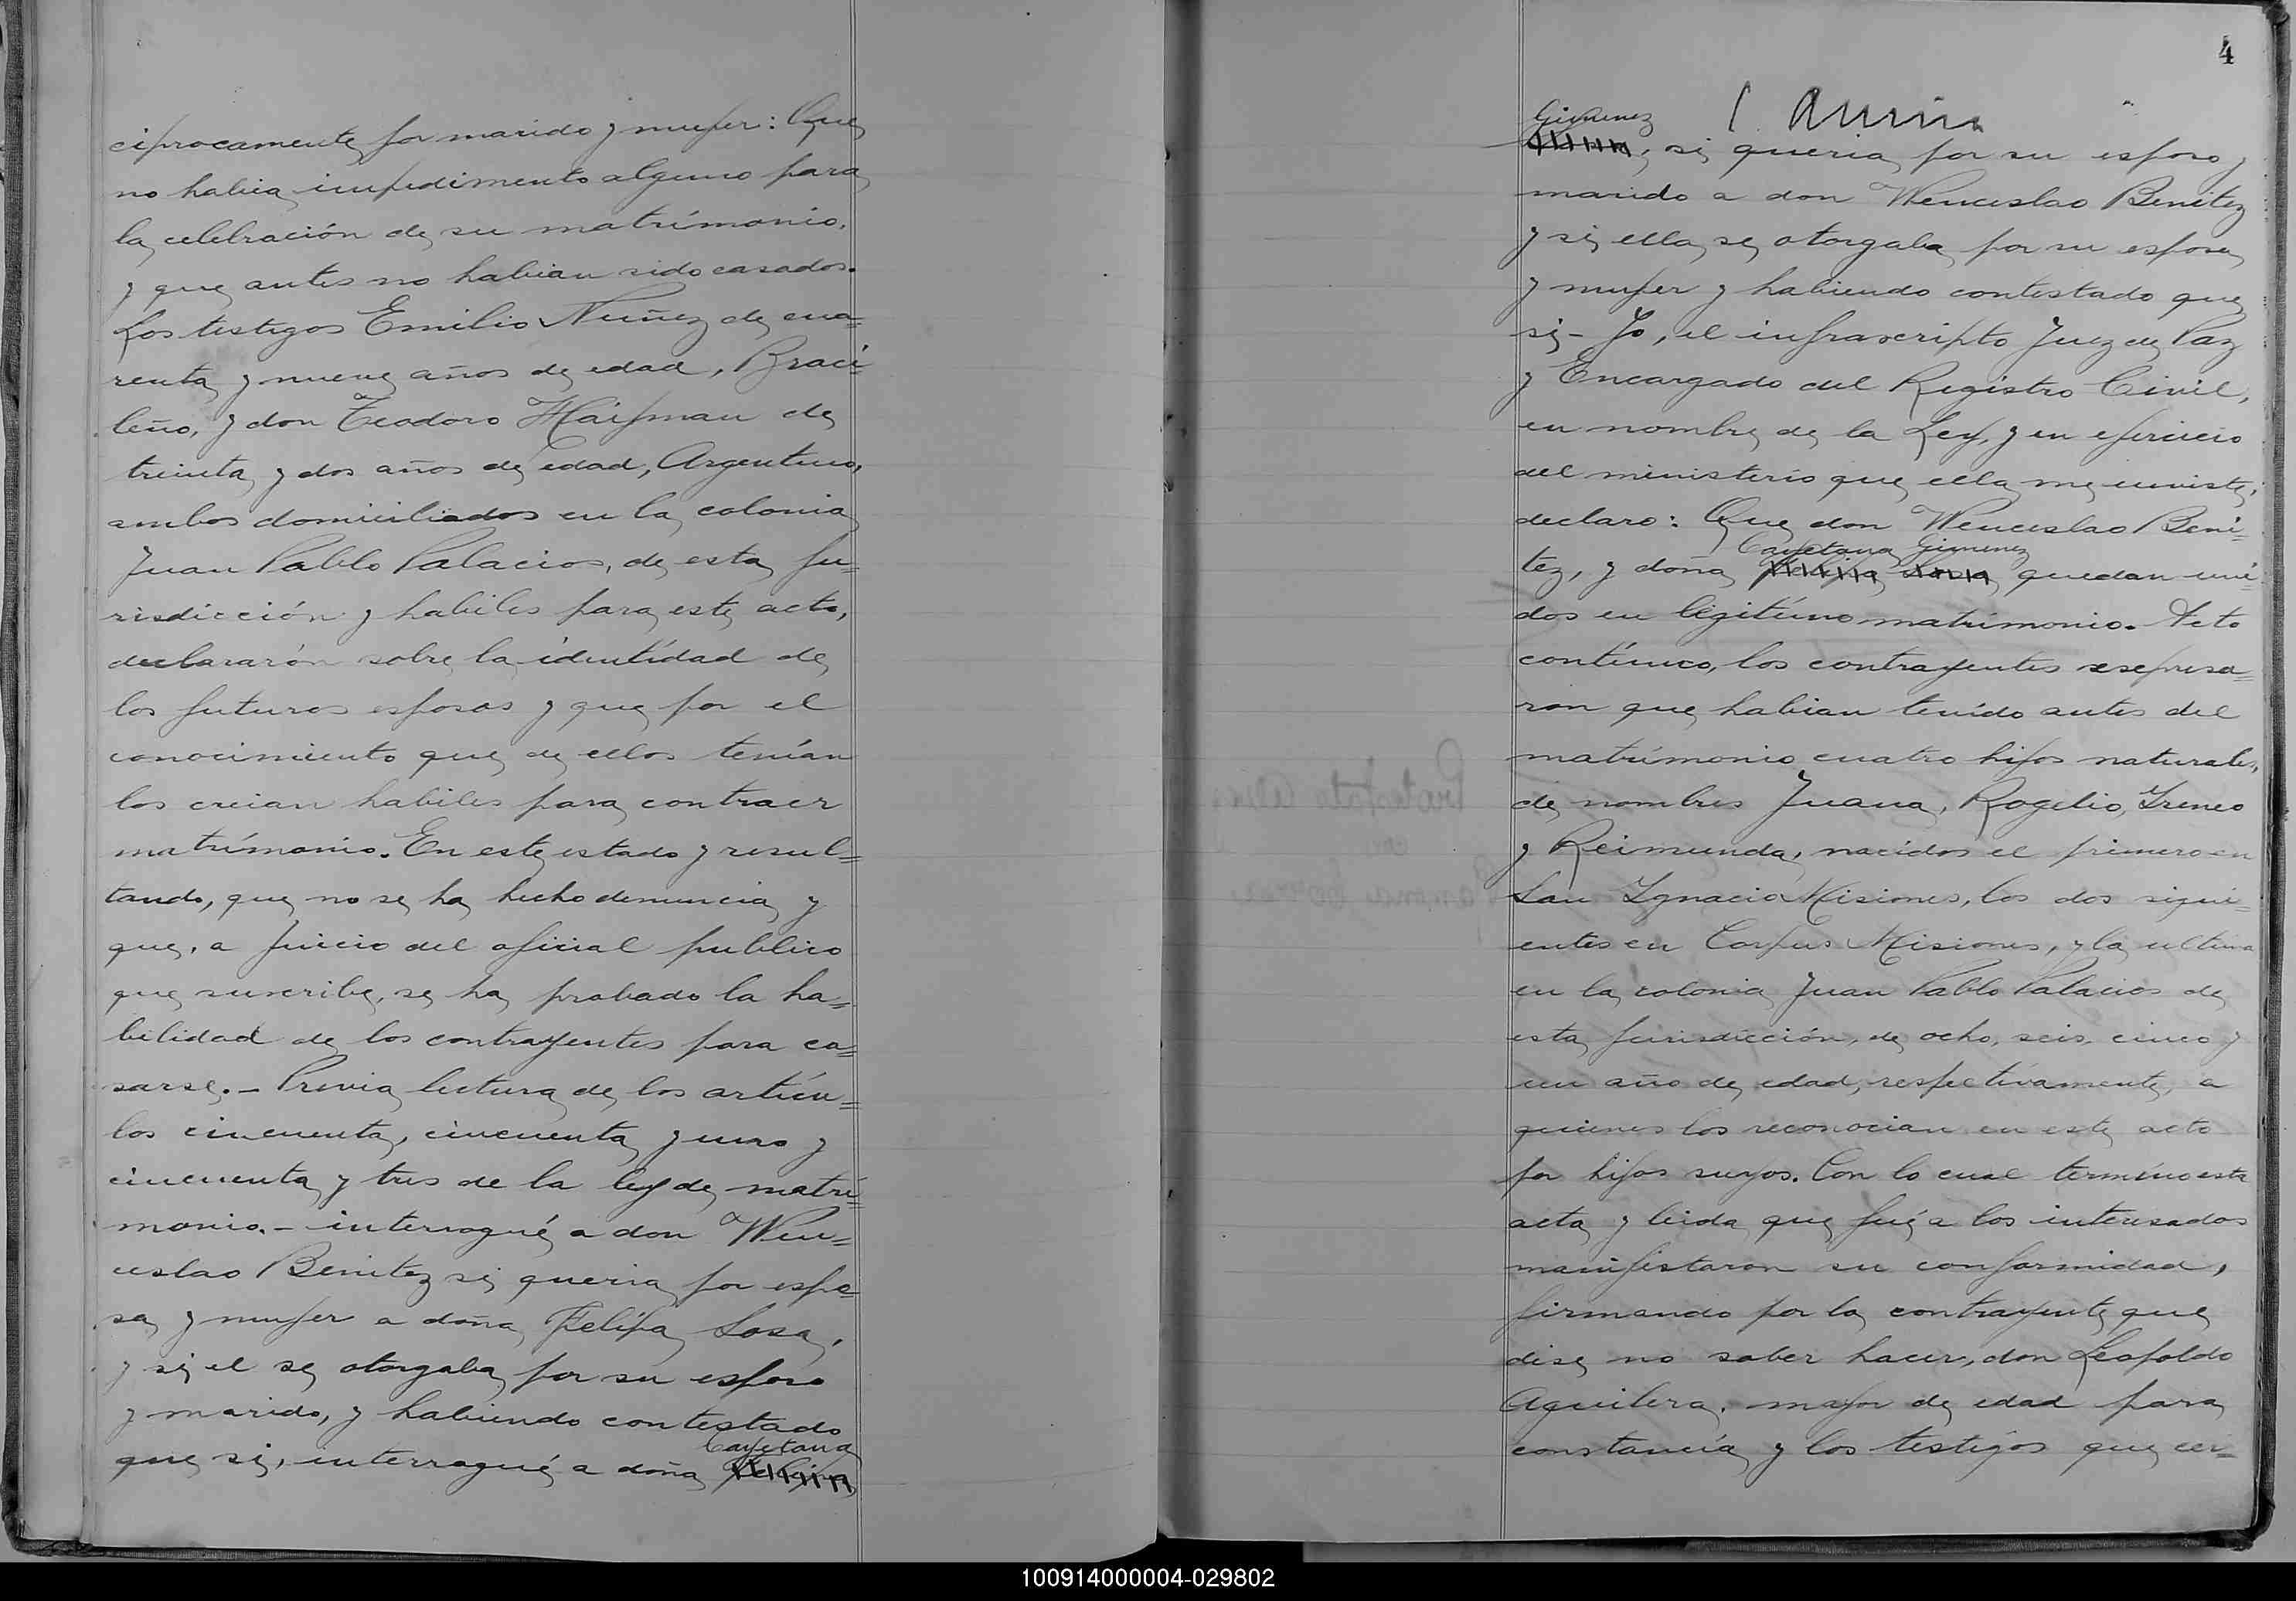 ciprocamente por marido y mujer: Que
no habia impedimento alguno para
la celebración de su matrímonio,
y que antes no habian sido casados.
Los testigos Emilio Nuñez de cua=
renta y nueve años de edad, Braci=
leño, y don Teodoro Haifman de
treinta y dos años de edad, Argentino,
ambos domiciliados en la colonia
Juan Pablo Palacios, de esta ju=
risdicción y habiles para este acto,
declararón sobre la identídad de
los futuros esposos y que por el
conocimiento que de ellos tenían
los creian habiles para contraer
matrímonio. En este estado y resul=
tando, que no se ha hecho denuncia y
que, a juicio del oficial publico
que suscribe, se ha probado la ha=
bilidad de los contrayentes para ca=
sarse.- Previa lectura de los artícu=
los cincuenta, cincuenta y uno y
cincuenta y tres de la ley de matri=
monio.- interrogué a don Wen=
ceslao Benitez si queria por espo=
sa y mujer a doña Felipa Sosa,
y si el se otorgaba por su esposo
y marido, y habiendo contestado
Cayetana
que si, interrogué a doña Felipa
4
Gimenez
si queria por su esposo y
marido a don Wenceslao Benitez
y si ella se otorgaba por su esposa
y mujer y habiendo contestado que
si- Yo, el infrascripto Juez de Paz
y Encargado del Registro Civil,
en nombre de la Ley, y en ejercicio
del ministerio que ella me inviste,
declaro: Que don Wenceslao Beni=
Cayetana Gimenez
tez, y doña Felipa Sosa quedan uni=
dos en legitímo matrímonio. Acto
contínuo, los contrayentes esepresa=
ron que habian tenído antes del
matrímonio cuatro hijos naturales,
de nombres Juana, Rogelio, Ireneo
y Reimunda, nacidos el primero en
San Ygnacio Misiones, los dos sigui=
entes en Corpus Misiones, y la ultima
en la colonia Juan Pablo Palacios de
esta jurisdicción, de ocho, seis, cinco y
un año de edad, respectívamente, a
quienes los reconocian en este acto
por hijos suyos. Con lo cual termíno esta
acta y leida que fué a los interesados
manifestaron su conformidad,
firmando por la contrayente que
dise no saber hacer, don Leopoldo
Aguilera, mayor de edad para
constancía y los testígos que cer=
100914000004-029802